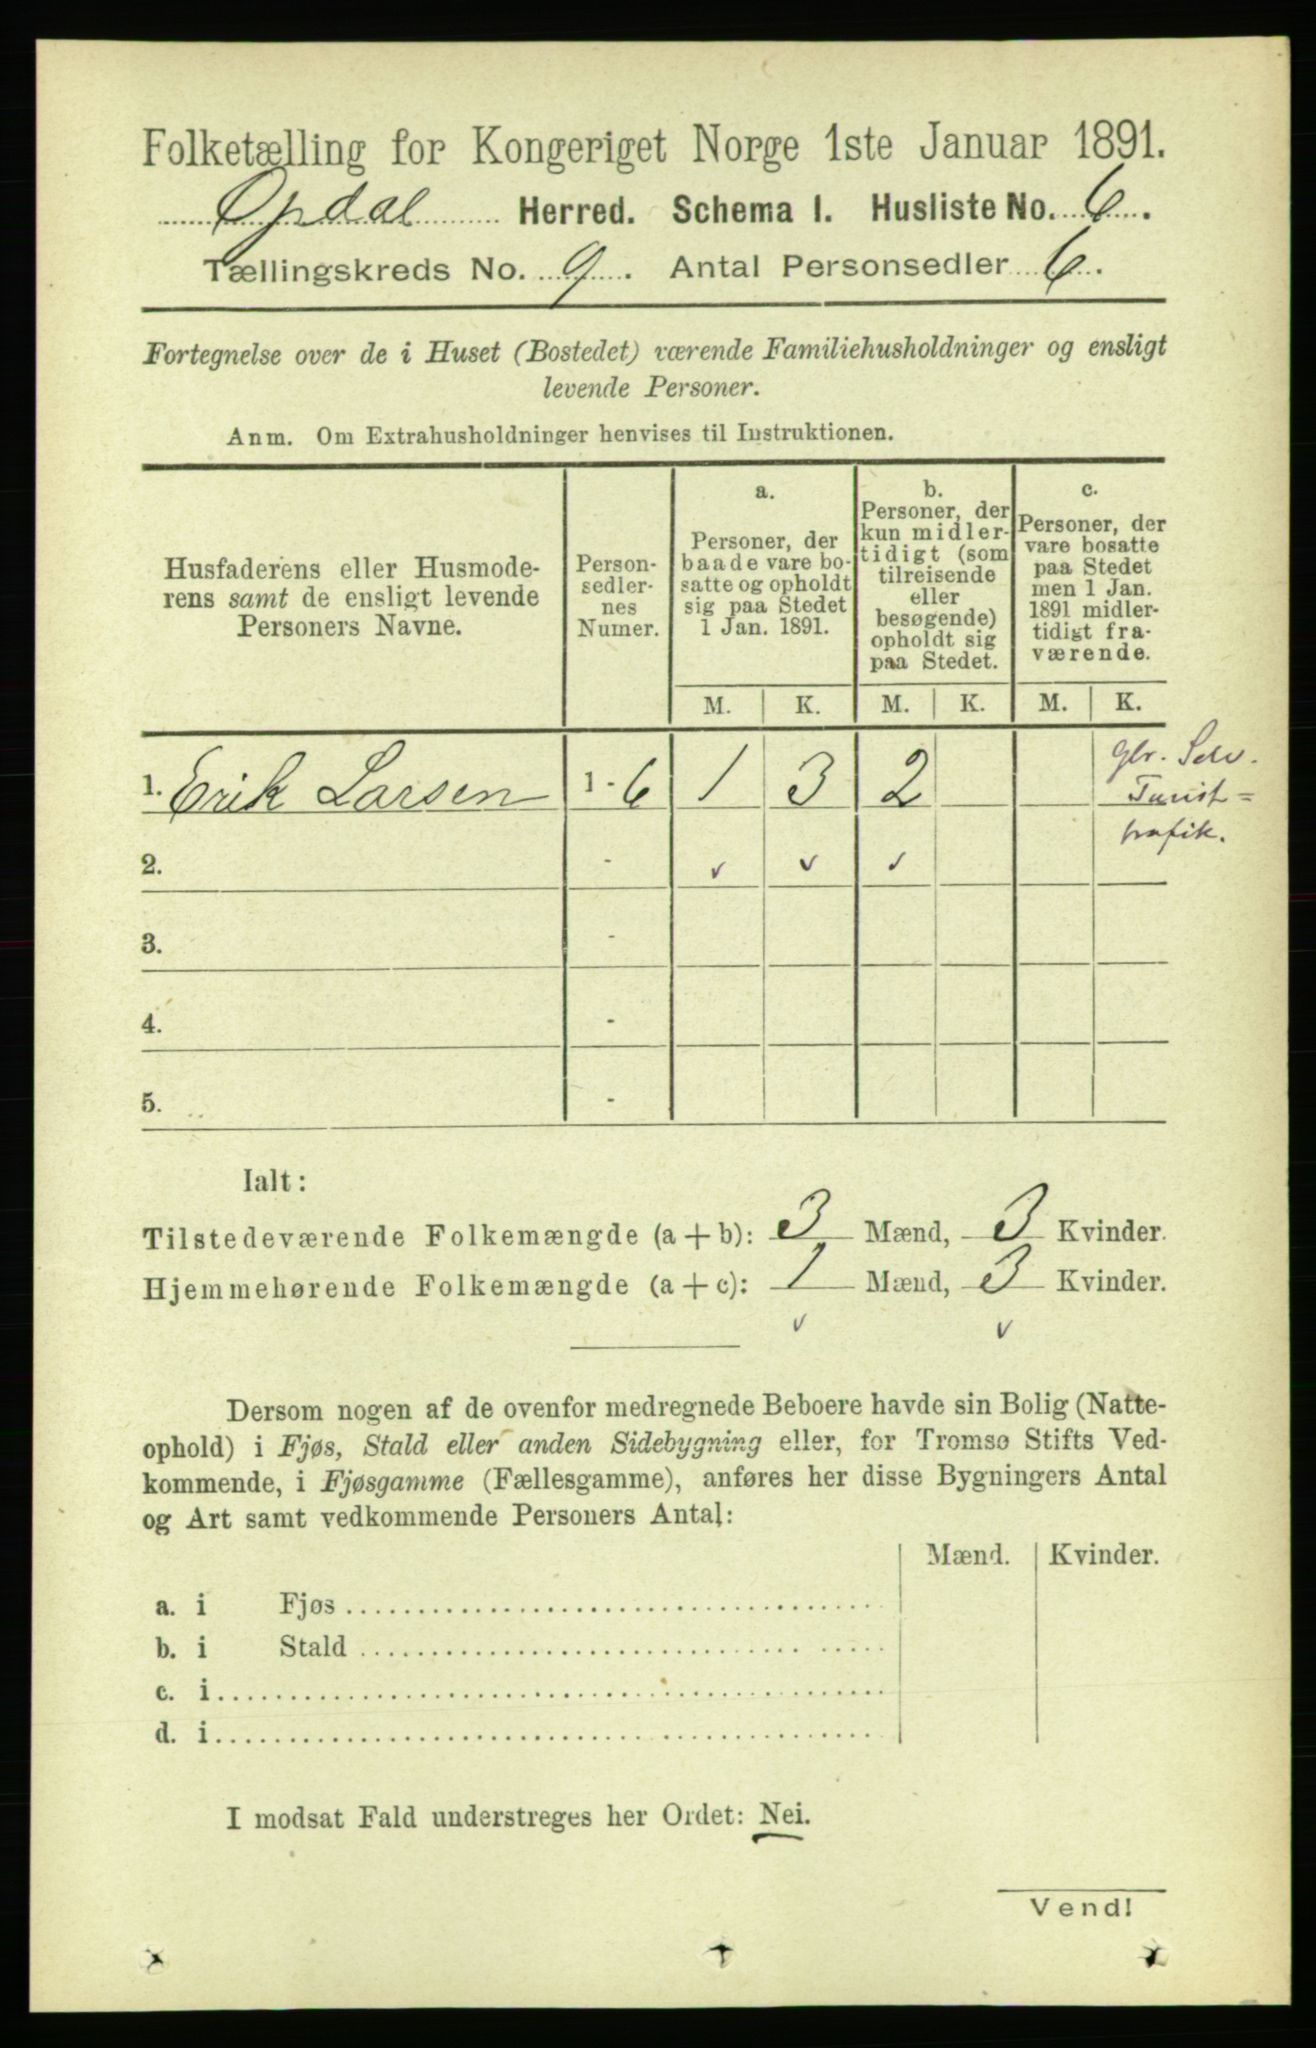 Folketælling for Kongeriget Norge 1ste Januar 1891.
Opdal Herred. Schema 1. Husliste No. 6.
Tællingskreds No. 9. Antal Personsedler 6.
Fortegnelse over de i Huset (Bostedet) værende Familiehusholdninger og ensligt
levende Personer.
Anm. Om Extrahusholdninger henvises til Instruktionen.
Husfaderens eller Husmode-
rens samt de ensligt levende
Personers Navne.
Person-
sedler-
nes
Numer.
a.
Personer, der
baade vare bo-
satte og opholdt
sig paa Stedet
1 Jan. 1891.
b.
Personer, der
kun midler-
tidigt (som
tilreisende
eller
besøgende)
opholdt sig
paa Stedet.
c.
Personer, der
vare bosatte
paa Stedet
men 1 Jan.
1891 midler-
tidigt fra-
værende.
M. K. M. K. M. K.
1. Erik Larsen 1 - 6 1 3 2
Gbr. Selv.
Turist=
trafik.
2. - v v v
3. -
4. -
5. -
Ialt:
Tilstedeværende Folkemængde (a + b): 3 Mænd, 3 Kvinder.
Hjemmehørende Folkemængde (a + c): 1 Mænd, 3 Kvinder.
v v
Dersom nogen af de ovenfor medregnede Beboere havde sin Bolig (Natte-
ophold) i Fjøs, Stald eller anden Sidebygning eller, for Tromsø Stifts Ved-
kommende, i Fjøsgamme (Fællesgamme), anføres her disse Bygningers Antal
og Art samt vedkommende Personers Antal:
Mænd. Kvinder.
a. i Fjøs
b. i Stald
c. i
d. i
I modsat Fald understreges her Ordet: Nei.
Vend!